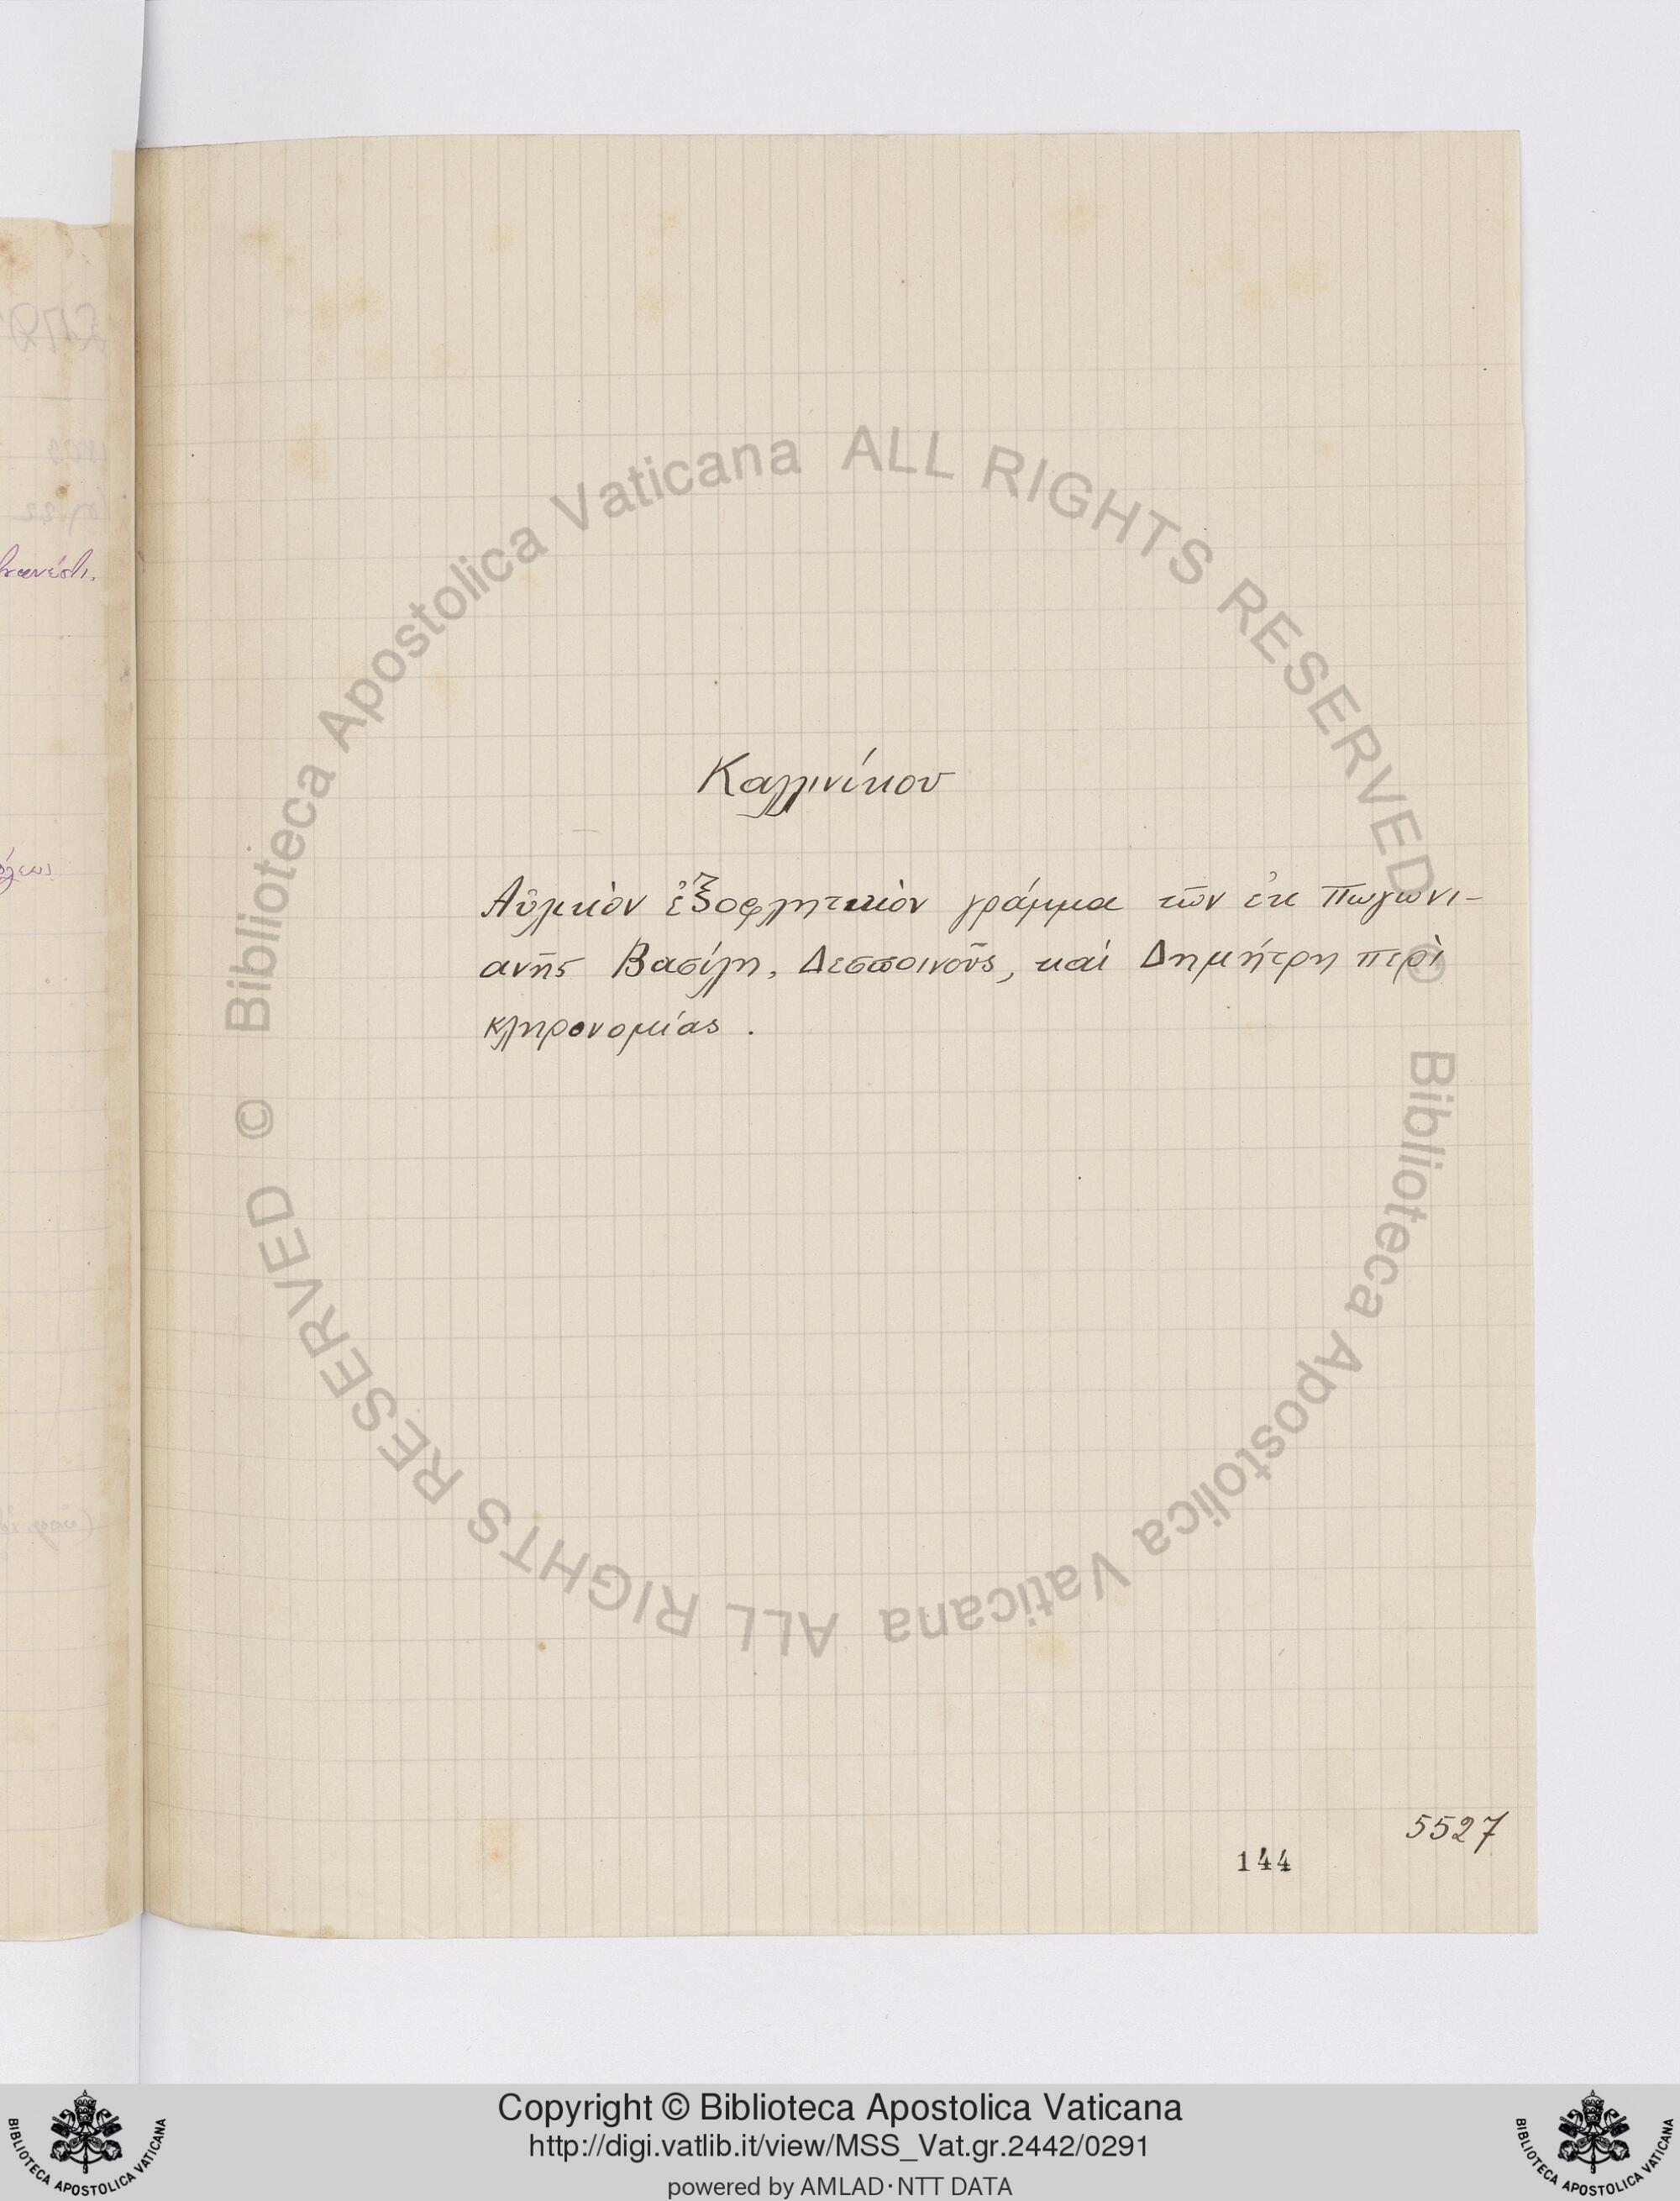 Καλλινίκου
Αὐλικὸν ἐξοφλητικὸν γράμμα τῶν ἐκ Πωγωνι-
ανῆς Βασίλη, Δεσποινοῦς, καί Δημήτρη περὶ
κληρονομίας.
5527
144
Biblioteca Apostolica Vaticana ALL RIGHTS RESERVED ©
Biblioteca Apostolica Vaticana ALL RIGHTS RESERVED ©
Copyright © Biblioteca Apostolica Vaticana
http://digi.vatlib.it/view/MSS_Vat.gr.2442/0291
powered by AMLAD·NTT DATA
BIBLIOTECA APOSTOLICA VATICANA
BIBLIOTECA APOSTOLICA VATICANA